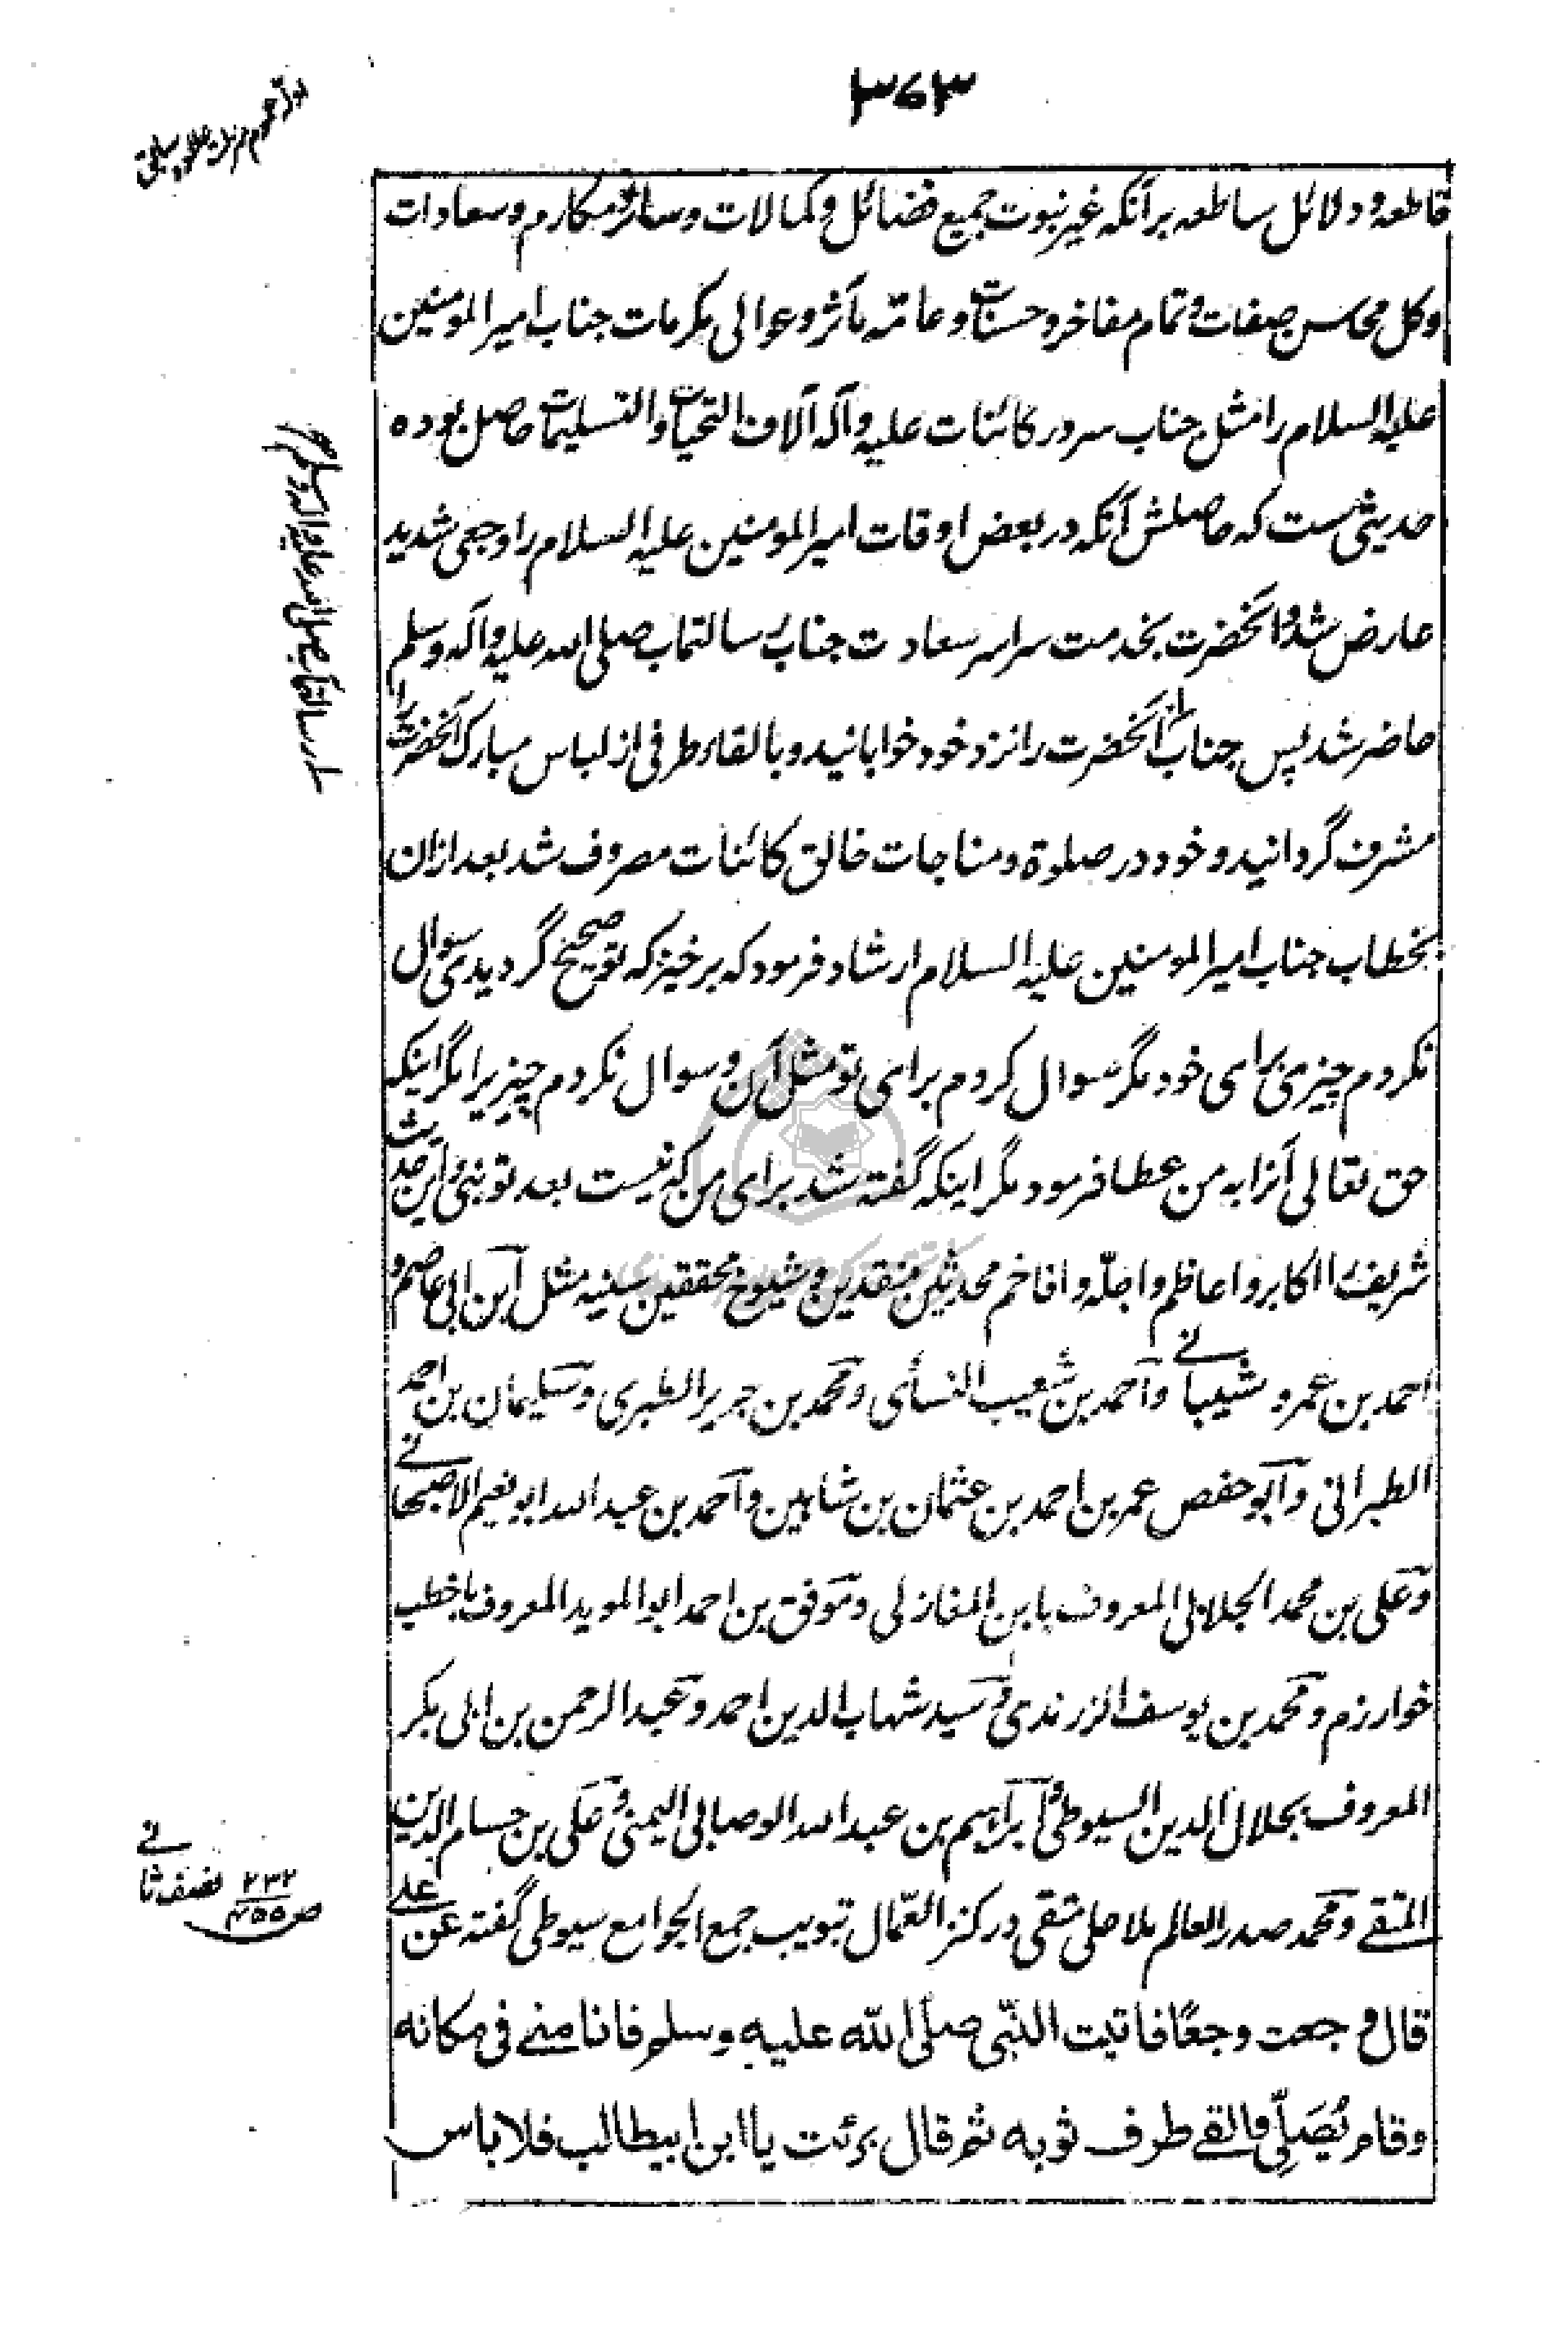 ٣٧٣
قاطعه و دلائل ساطعه بر آنکه غیر نبوت جمیع فضائل و کمالات و سائر مکارم و سعادات
و کل محاسن صفات و تمام مفاخر و حسنات و عامّه مآثر و عوالی مکرمات جناب امیر المومنین
علیه السلام را مثل جناب سرور کائنات علیه و آله آلاف التحیات و التسلیمات حاصل بوده
حدیثی ست که حاصلش آنکه در بعض اوقات امیر المومنین علیه السلام را وجعی شدید
عارض شد و آنحضرت بخدمت سراسر سعادت جناب رسالتماب صلی الله علیه و آله و سلم
حاضر شد پس جناب آنحضرت را نزد خود خوابانید و بالقاء طرفی از لباس مبارک آنحضرت را
مشرف گردانید و خود در صلوة و مناجات خالق کائنات مصروف شد بعد ازان
بخطاب جناب امیر المومنین علیه السلام ارشاد فرمود که برخیز که تو صحیح گردیدی سوال
نکردم چیزی برای خود مگر سوال کردم برای تو مثل آن و سوال نکردم چیزیرا مگر اینکه
حق تعالی آنرا به من عطا فرمود مگر اینکه گفته شد برای من که نیست بعد تو نبی و این حدیث
شریف را اکابر و اعاظم و اجلّه و افاخم محدثین منقدین و شیوخ محققین سنیه مثل ابن ابی عاصم و
احمد بن عمرو شیبانے و احمد بن شعیب النسأی و محمد بن جریر الطبری و سلیمان بن احمد
الطبرانی و ابو حفص عمر بن احمد بن عثمان بن شاہین و احمد بن عبد الله ابو نعیم الاصبحانے
و علی بن محمد الجلابی المعروف بابن المغازلی و موفق بن احمد ابو الموید المعروف باخطب
خوارزم و محمد بن یوسف الزرندی و سید شهاب الدین احمد و عبد الرحمن بن ابی بکر
المعروف بجلال الدین السیوطی و ابراہیم بن عبد الله الوصابی الیمنی و علی بن حسام الدین
المتقے و محمد صدر العالم ملا علی متقی در کنز العمّال تبویب جمع الجوامع سیوطی گفته عن علے
قال وجعت وجعًا فاتیت النّبی صلی اللّه علیه وسلم فانا منے فی مکانه
وقام یُصَلِّی والقے طرف ثوبه ثم قال برئت یا ابن ابیطالب فلا باس
رسالتمآب صلی الله علیه و آله و سلم
ص ٢٣٢/٤٥٥ نصف ثانے